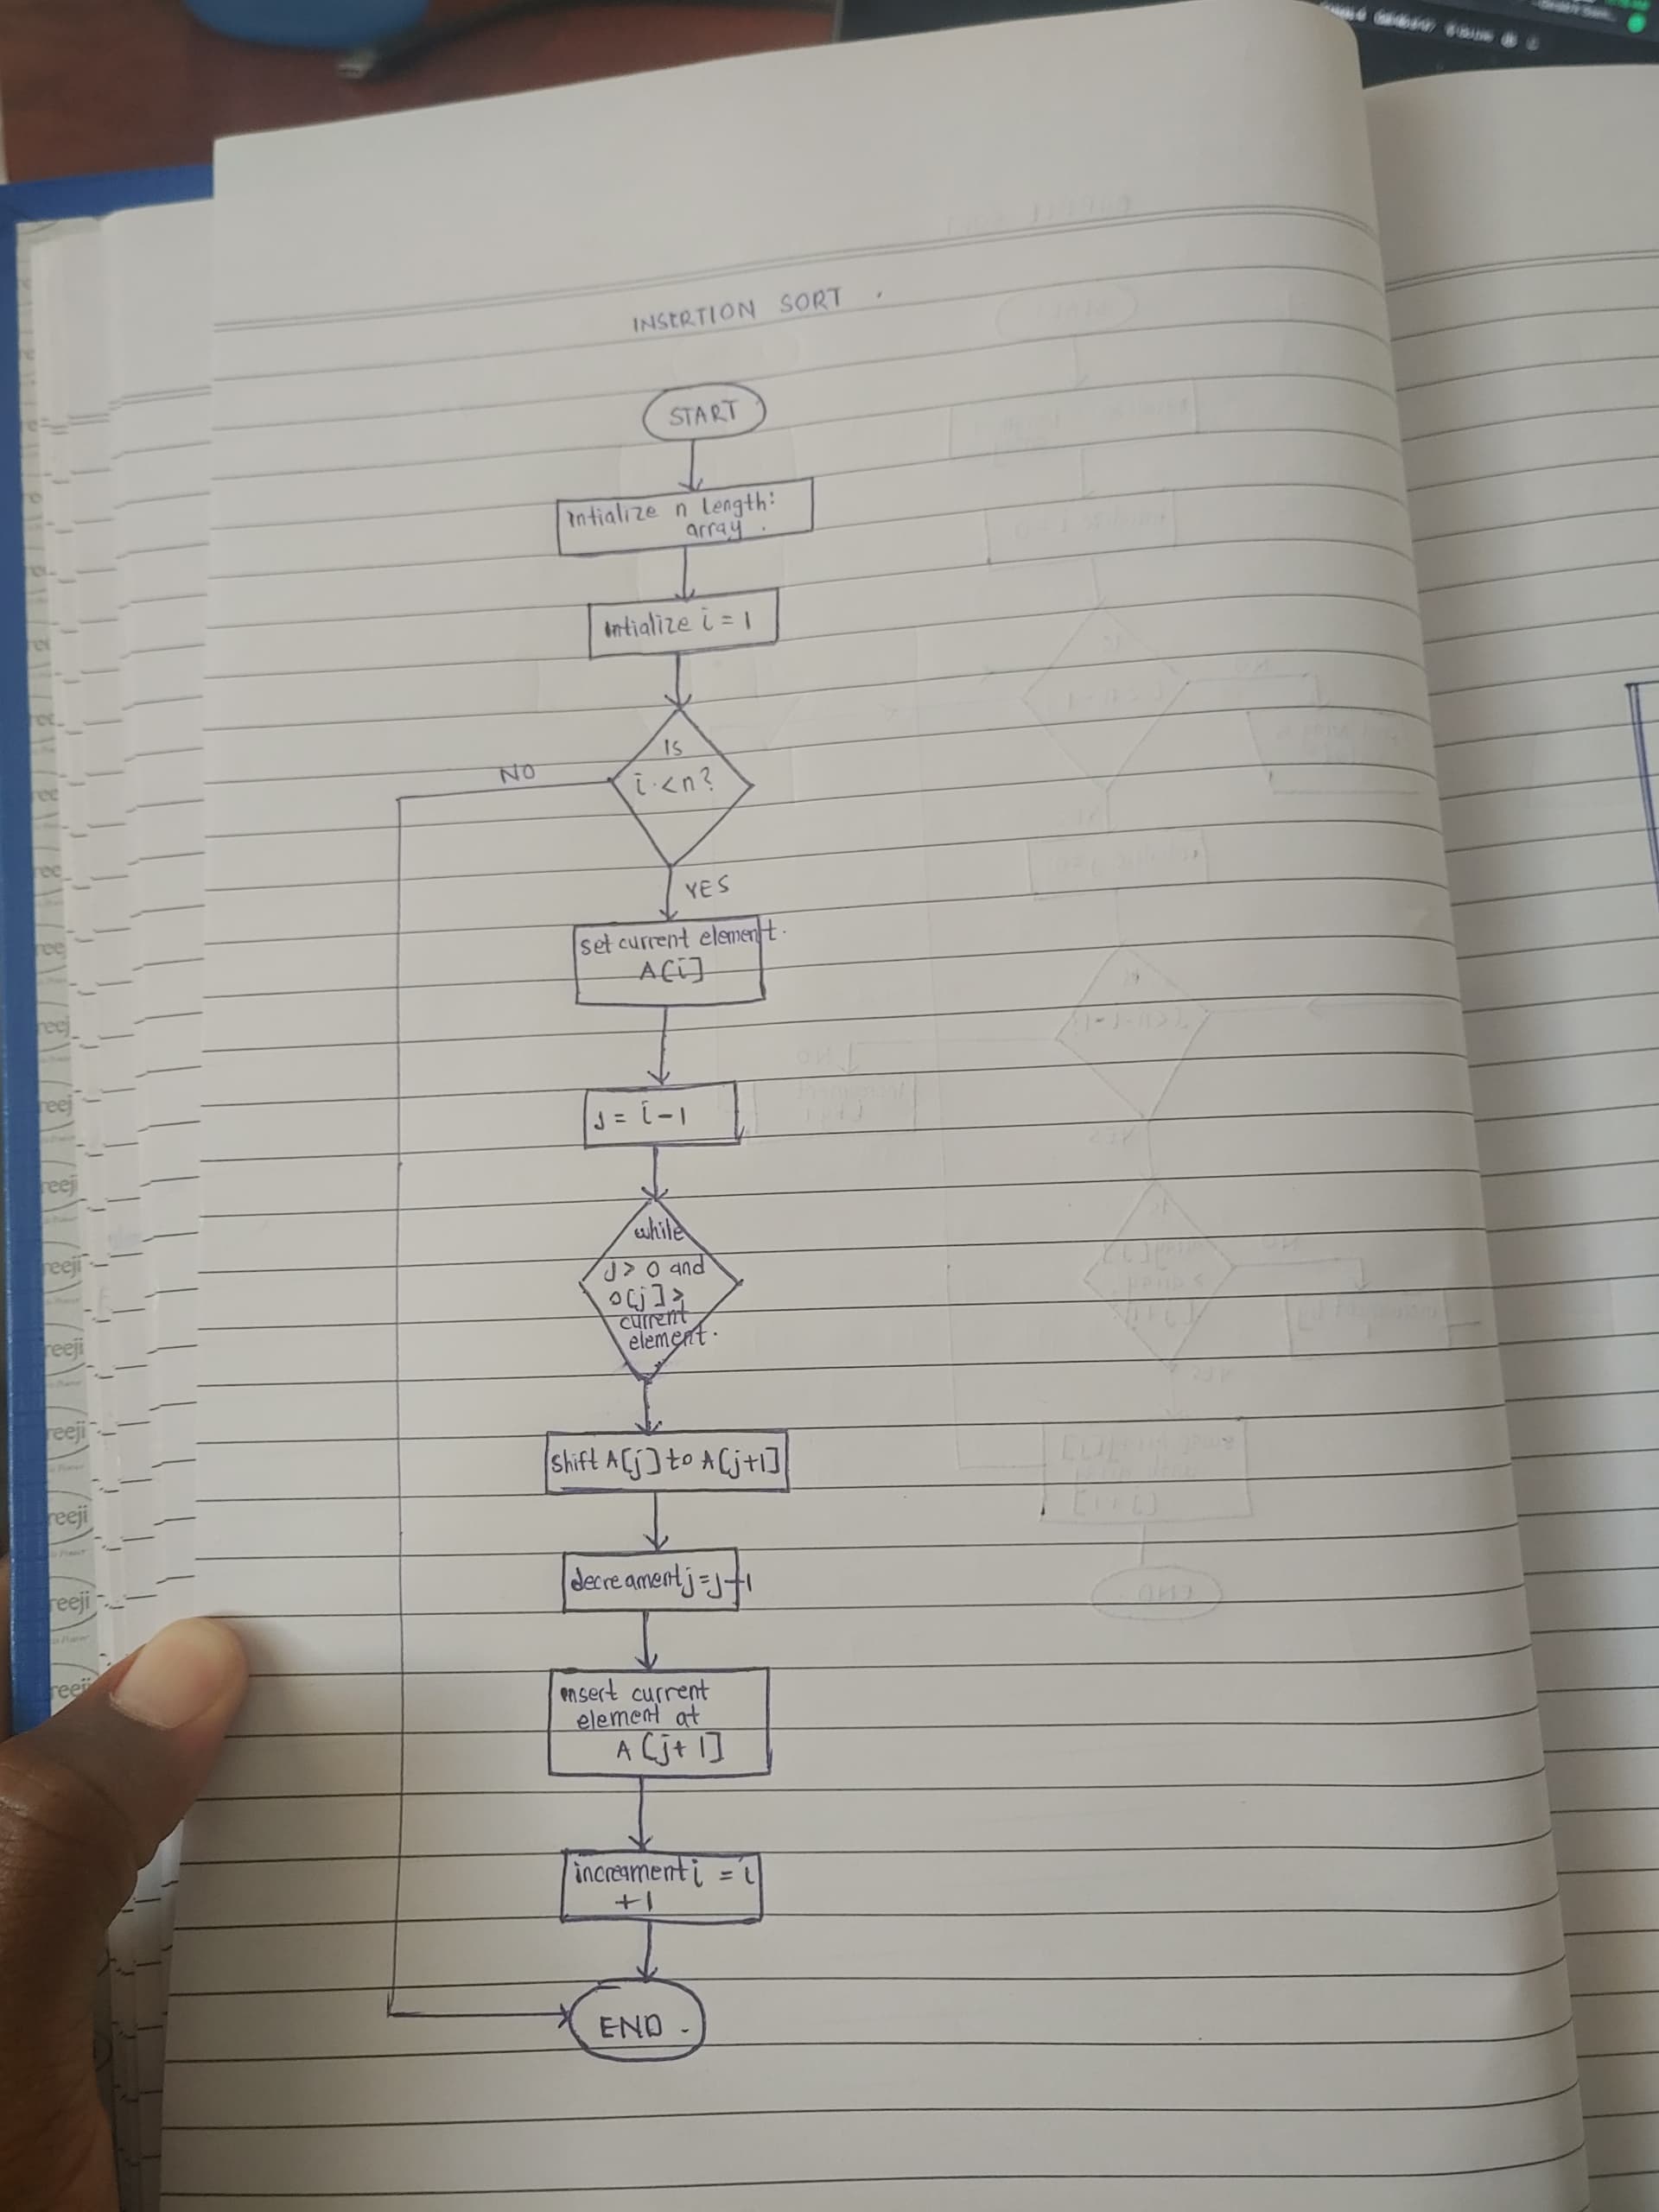 INSERTION SORT.
START
intialize n length:
array.
intialize i = 1
Is
i < n?
NO
YES
set current element.
A[i]
J = i-1
while
J > 0 and
current
element.
shift A[j] to A[j+1]
decreament j = j-1
insert current
element at
A[j+1]
increament i = i
+1
END.
reeji
reeji
reeji
reeji
reeji
reeji